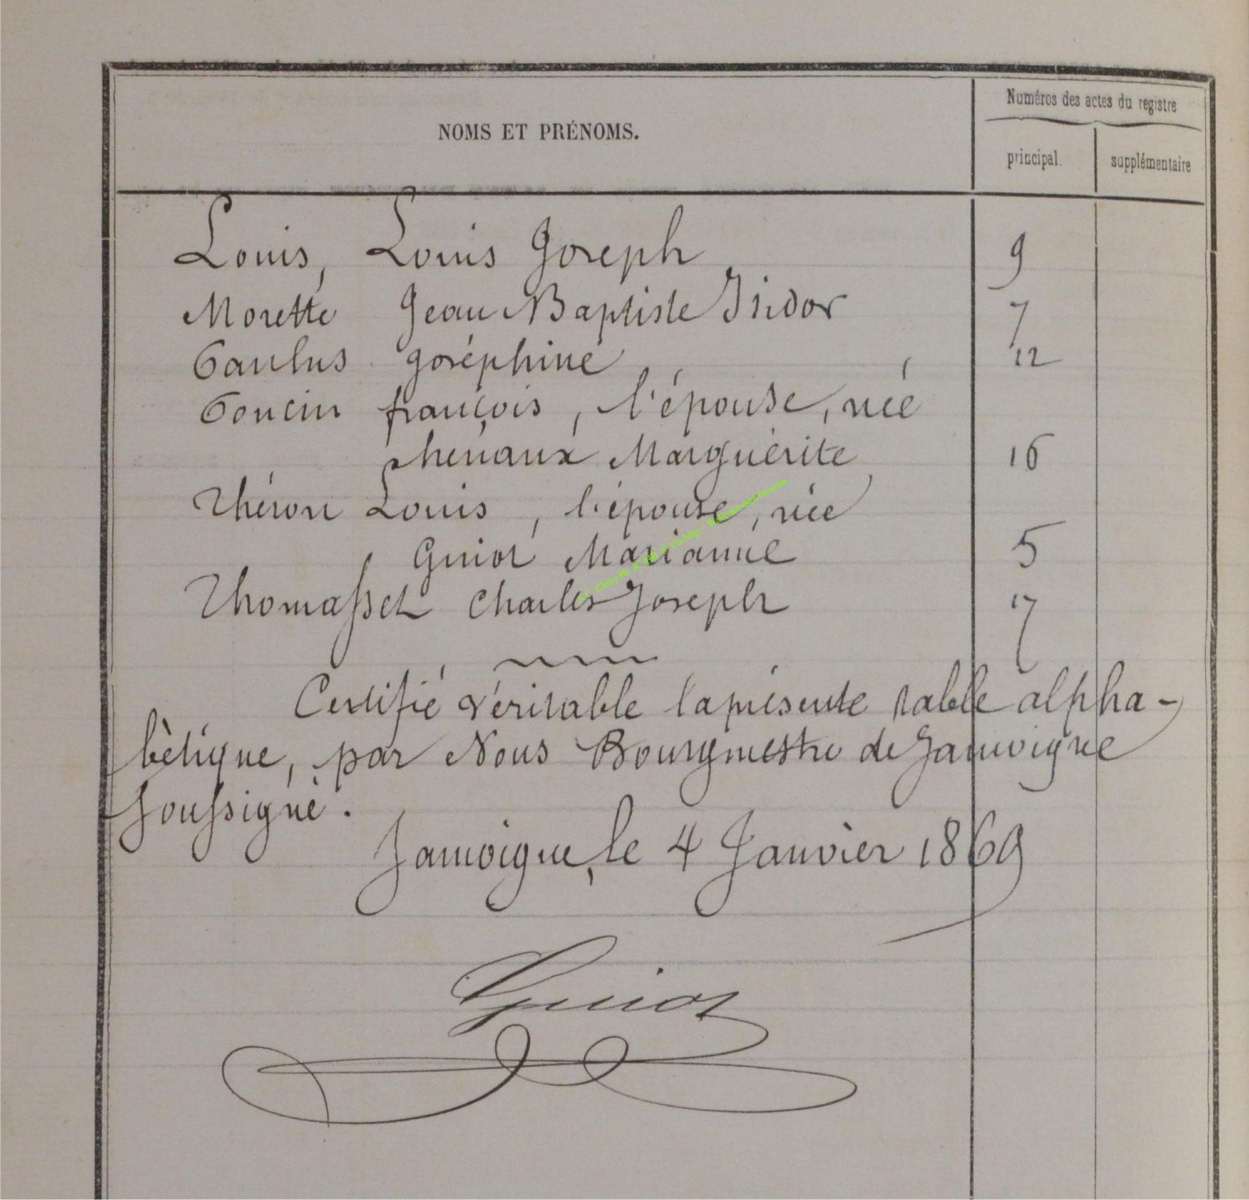 NOMS ET PRÉNOMS.
Numéros des actes du registre
principal.
supplémentaire
Louis, Louis Joseph 9
Morette Jean Baptiste Isidor 7
Paulus Joséphine 12
Poncin françois, l'épouse, née
henaux Marguérite 16
Théron Louis, l'épouse, née
Guiot Marianne 5
Thomasset Charles Joseph 17
Certifié véritable la présente table alpha-
bètique, par Nous Bourgmestre de Jamoigne
soussigné.
Jamoigne, le 4 Janvier 1869
Guiot